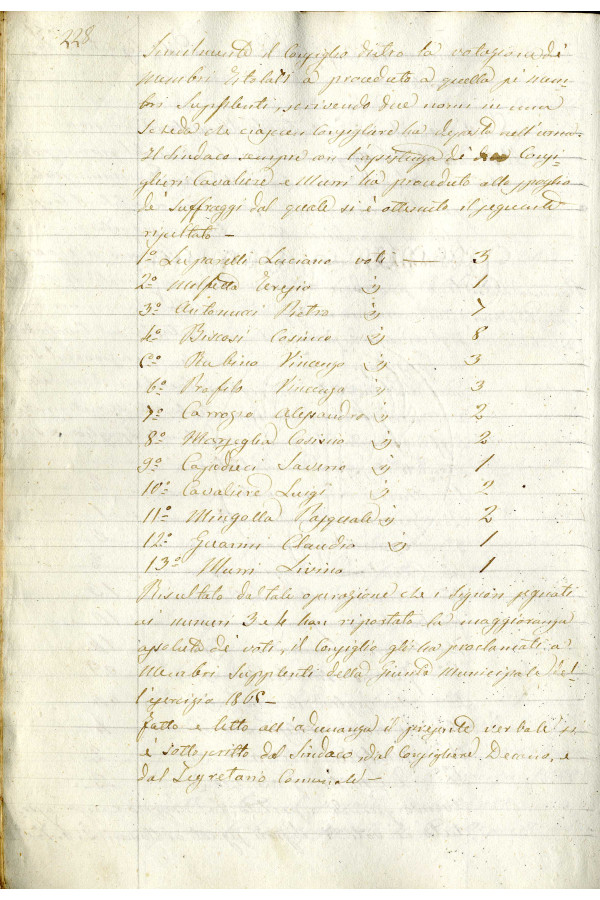 228
Similmente il Consiglio dietro la votazione de'
membri titolati a proceduto a quella pei mem-
bri Supplenti, scrivendo due nomi in una
Scheda che ciascun Consigliere ha deposto nell'urna.
Il Sindaco sempre con l'assistenza de' due Consi-
glieri Cavaliere e Murri ha proceduto allo spoglio
de' suffraggi dal quale si è ottenuto il seguente
risultato —
1º Lupparelli Luciano voti — 3
2º Molfetta 1
3º Antonucci Pietro 7
4º Biscosi Cosimo 8
5º Rubino Vincenzo 3
6º Profilo Vincenzo 3
7º Carrozzo Alessandro 2
8º Cosimo 2
9º Saverio 1
10º Cavaliere Luigi 2
11º Mingolla Pasquale 2
12º Claudio 1
13º Murri Livino 1
Risultato da tale operazione che i Signori segnati
ai numeri 3 e 4 han riportato la maggioranza
assoluta de' voti, il Consiglio gli ha proclamati a
Membri Supplenti della Giunta Municipale del
l'esercizio 1865 —
Fatto e letto all'adunanza il presente verbale si
è sottoscritto dal Sindaco, dal Consigliere Decano, e
dal Segretario Comunale —